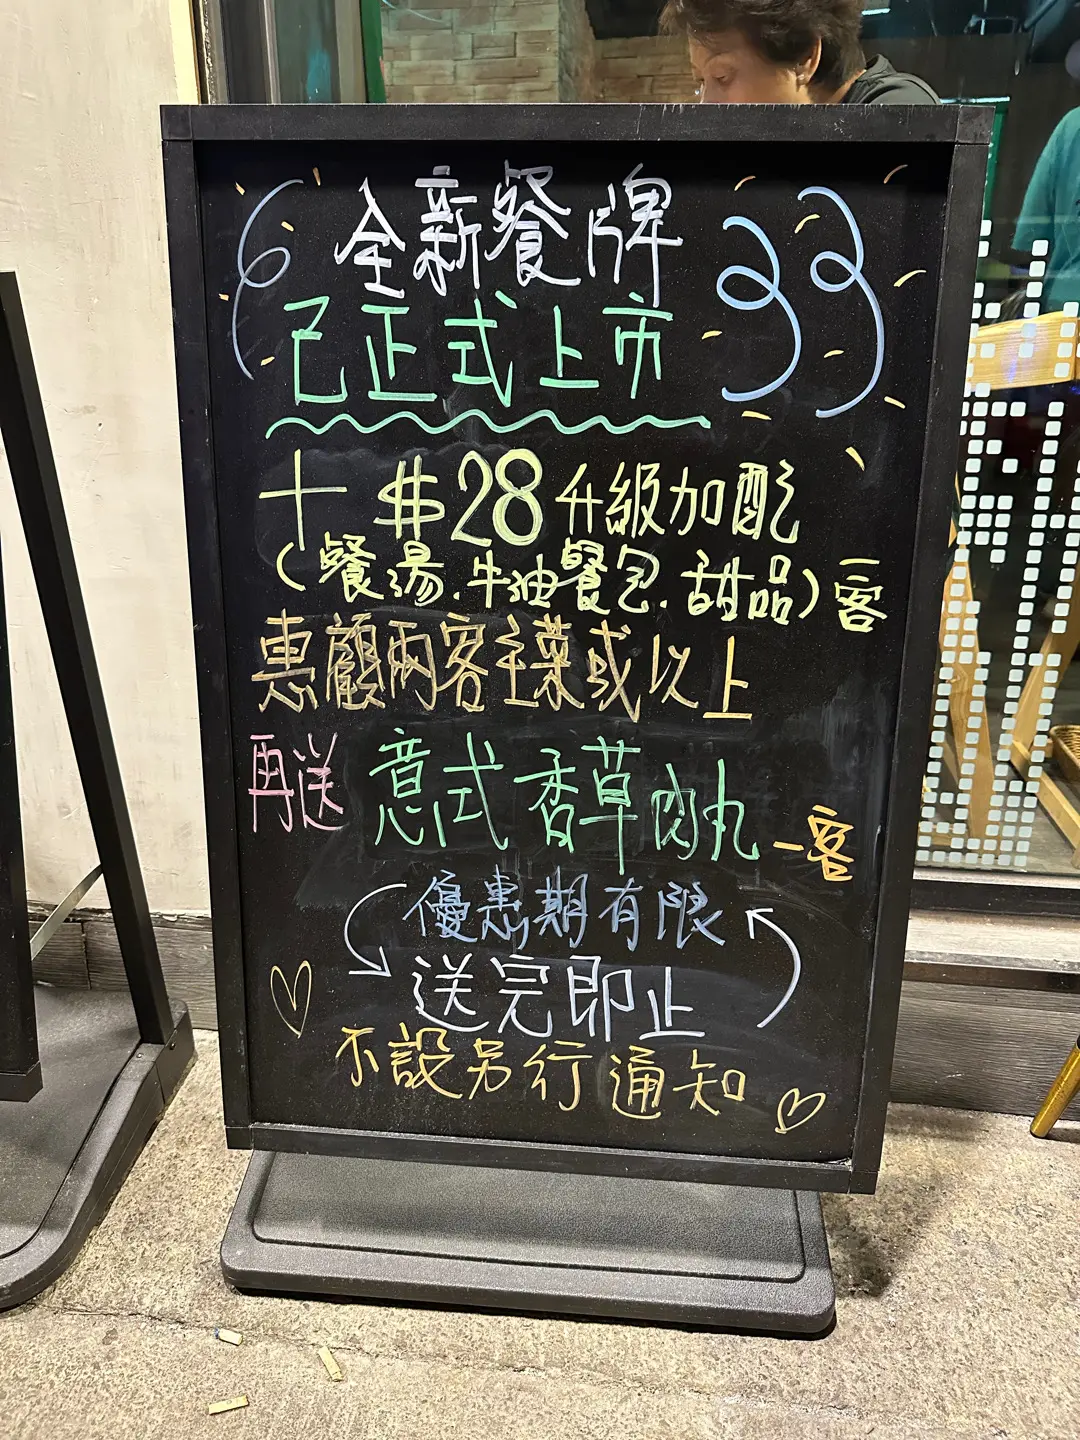 全新餐牌
已正式上市
+ $28 升級加配
(餐湯.牛油餐包.甜品)一客
惠顧兩客主菜或以上
再送 意式香草肉丸 一客
優惠期有限
送完即止
不設另行通知